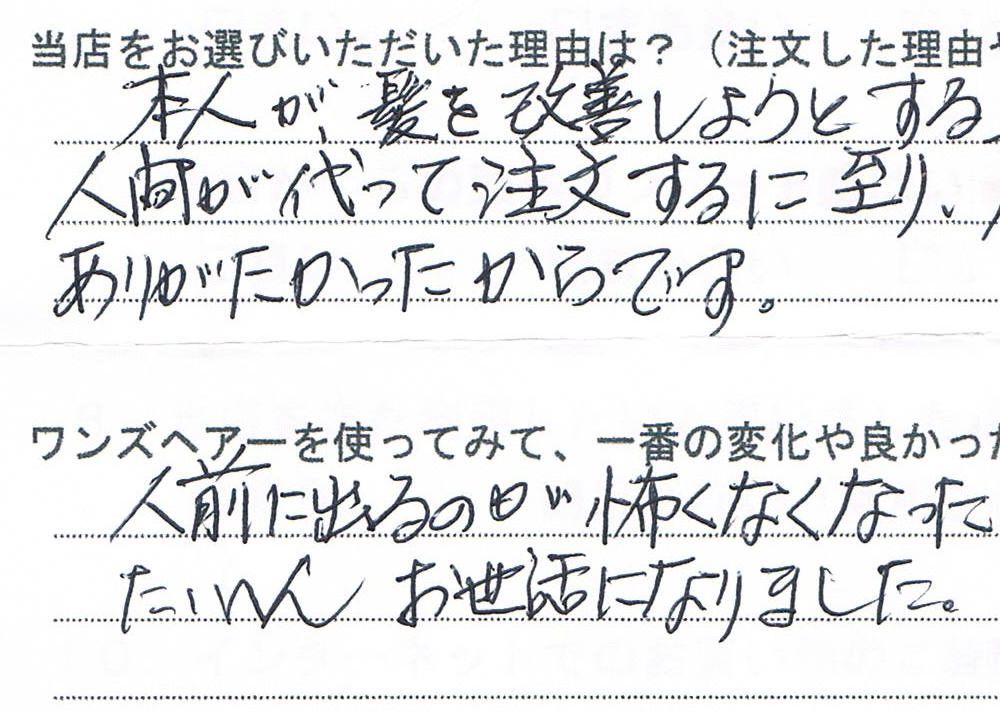 当店をお選びいただいた理由は？（注文した理由
本人が、髪を改善しようとする
人間が代って注文するに至り、
ありがたかったからです。
ワンズヘアーを使ってみて、一番の変化や良かった
人前に出るのが怖くなくなった
たいへん お世話になりました。